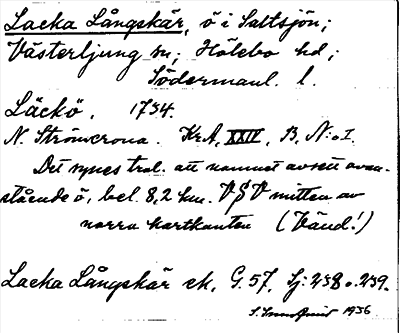 Lacka Långskär, ö i Saltsjön;
Västerljung sn; Hölebo hd;
Södermanl. l.
Läckö. 1734.
N. Strömcrona. KrA, XXIV, B, N:o 1.
Det synes trol. att namnet avsett ovan-
stående ö, bel. 8,2 km. VSV mitten av
norra kartkanten (Vänd!)
Lacka Långskär ek. G. 57, Sj: 238 o. 239.
1936